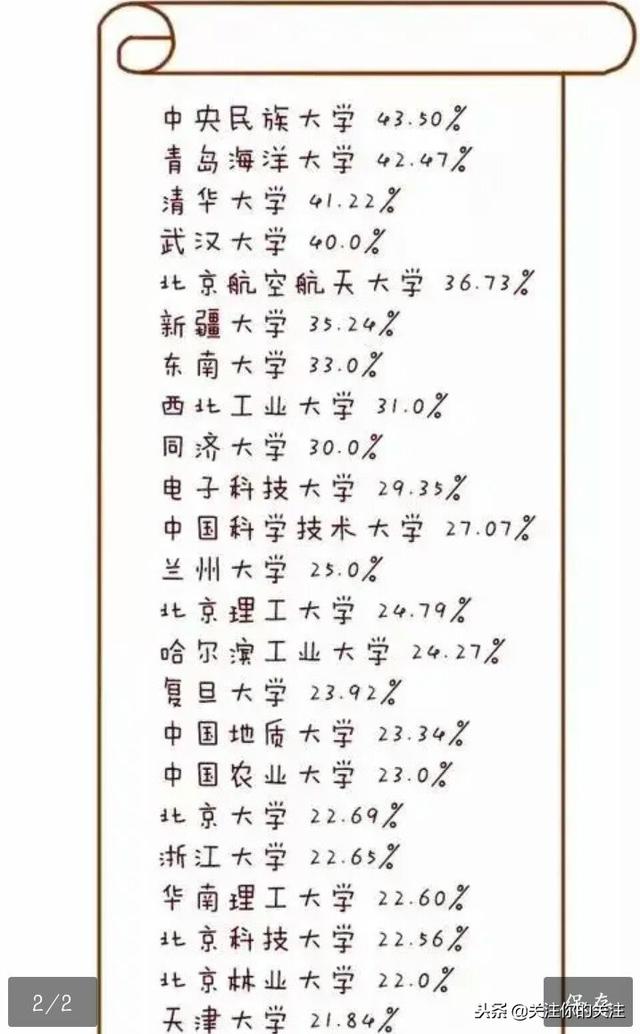 中央民族大学 43.50%
青岛海洋大学 42.47%
清华大学 41.22%
武汉大学 40.0%
北京航空航天大学 36.73%
新疆大学 35.24%
东南大学 33.0%
西北工业大学 31.0%
同济大学 30.0%
电子科技大学 29.35%
中国科学技术大学 27.07%
兰州大学 25.0%
北京理工大学 24.79%
哈尔滨工业大学 24.27%
复旦大学 23.92%
中国地质大学 23.34%
中国农业大学 23.0%
北京大学 22.69%
浙江大学 22.65%
华南理工大学 22.60%
北京科技大学 22.56%
北京林业大学 22.0%
天津大学 21.84%
2/2
保存
头条 @关注你的关注